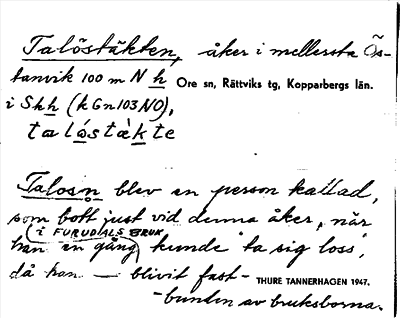 Talöstäkten, åker i mellersta Ös-
tanvik 100 m N h Ore sn, Rättviks tg, Kopparbergs län.
i Skh (kGn103NO),
talóstàkte
Talosn blev en person kallad,
som bott just vid denna åker, när
(i FURUDALS BRUK)
han en gång kunde "ta sig loss",
då han — blivit fast-
THURE TANNERHAGEN 1947.
-bunden av bruksborna.